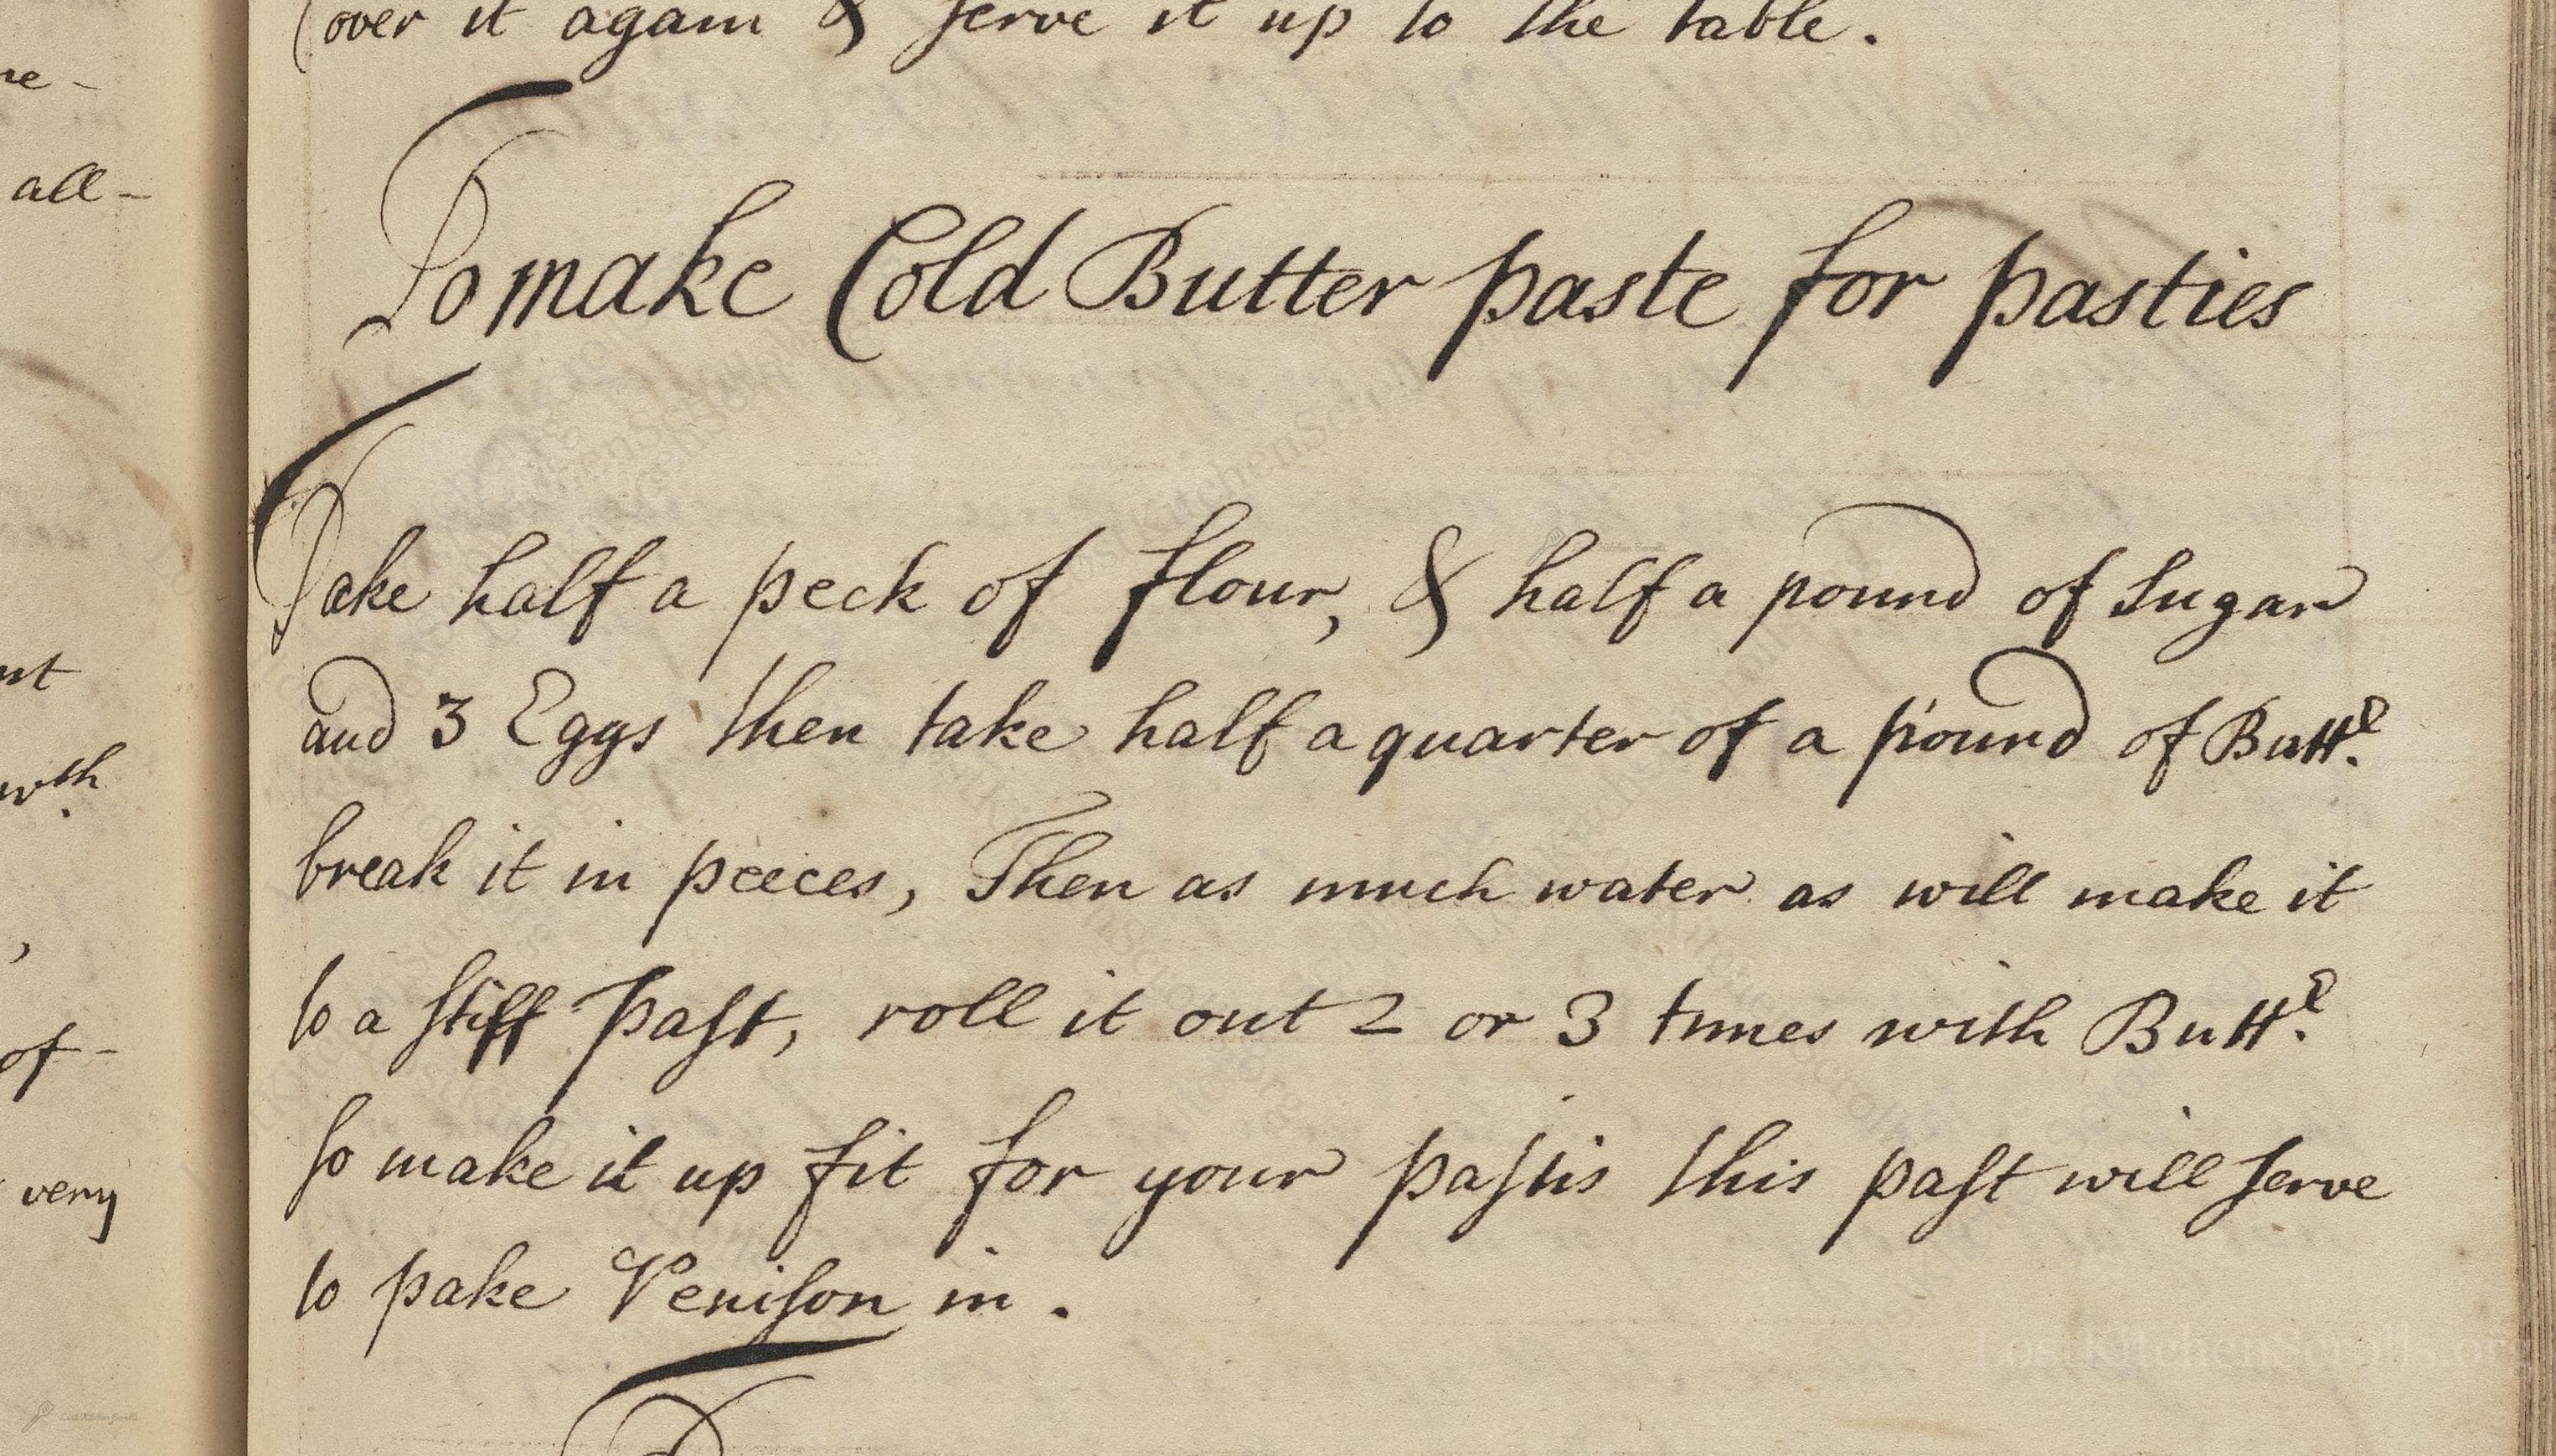 Cover it again & serve it up to the table.
To make Cold Butter paste for pasties
Take half a peck of flour, & half a pound of Sugar
and 3 Eggs then take half a quarter of a pound of Buttʳ.
break it in peeces, Then as much water as will make it
to a ſtiff Paſt, roll it out 2 or 3 times with Buttʳ.
ſo make it up fit for your paſtis this paſt will ſerve
to pake Veniſon in.
all-
wth
of-
very
LostKitchenScrolls.org